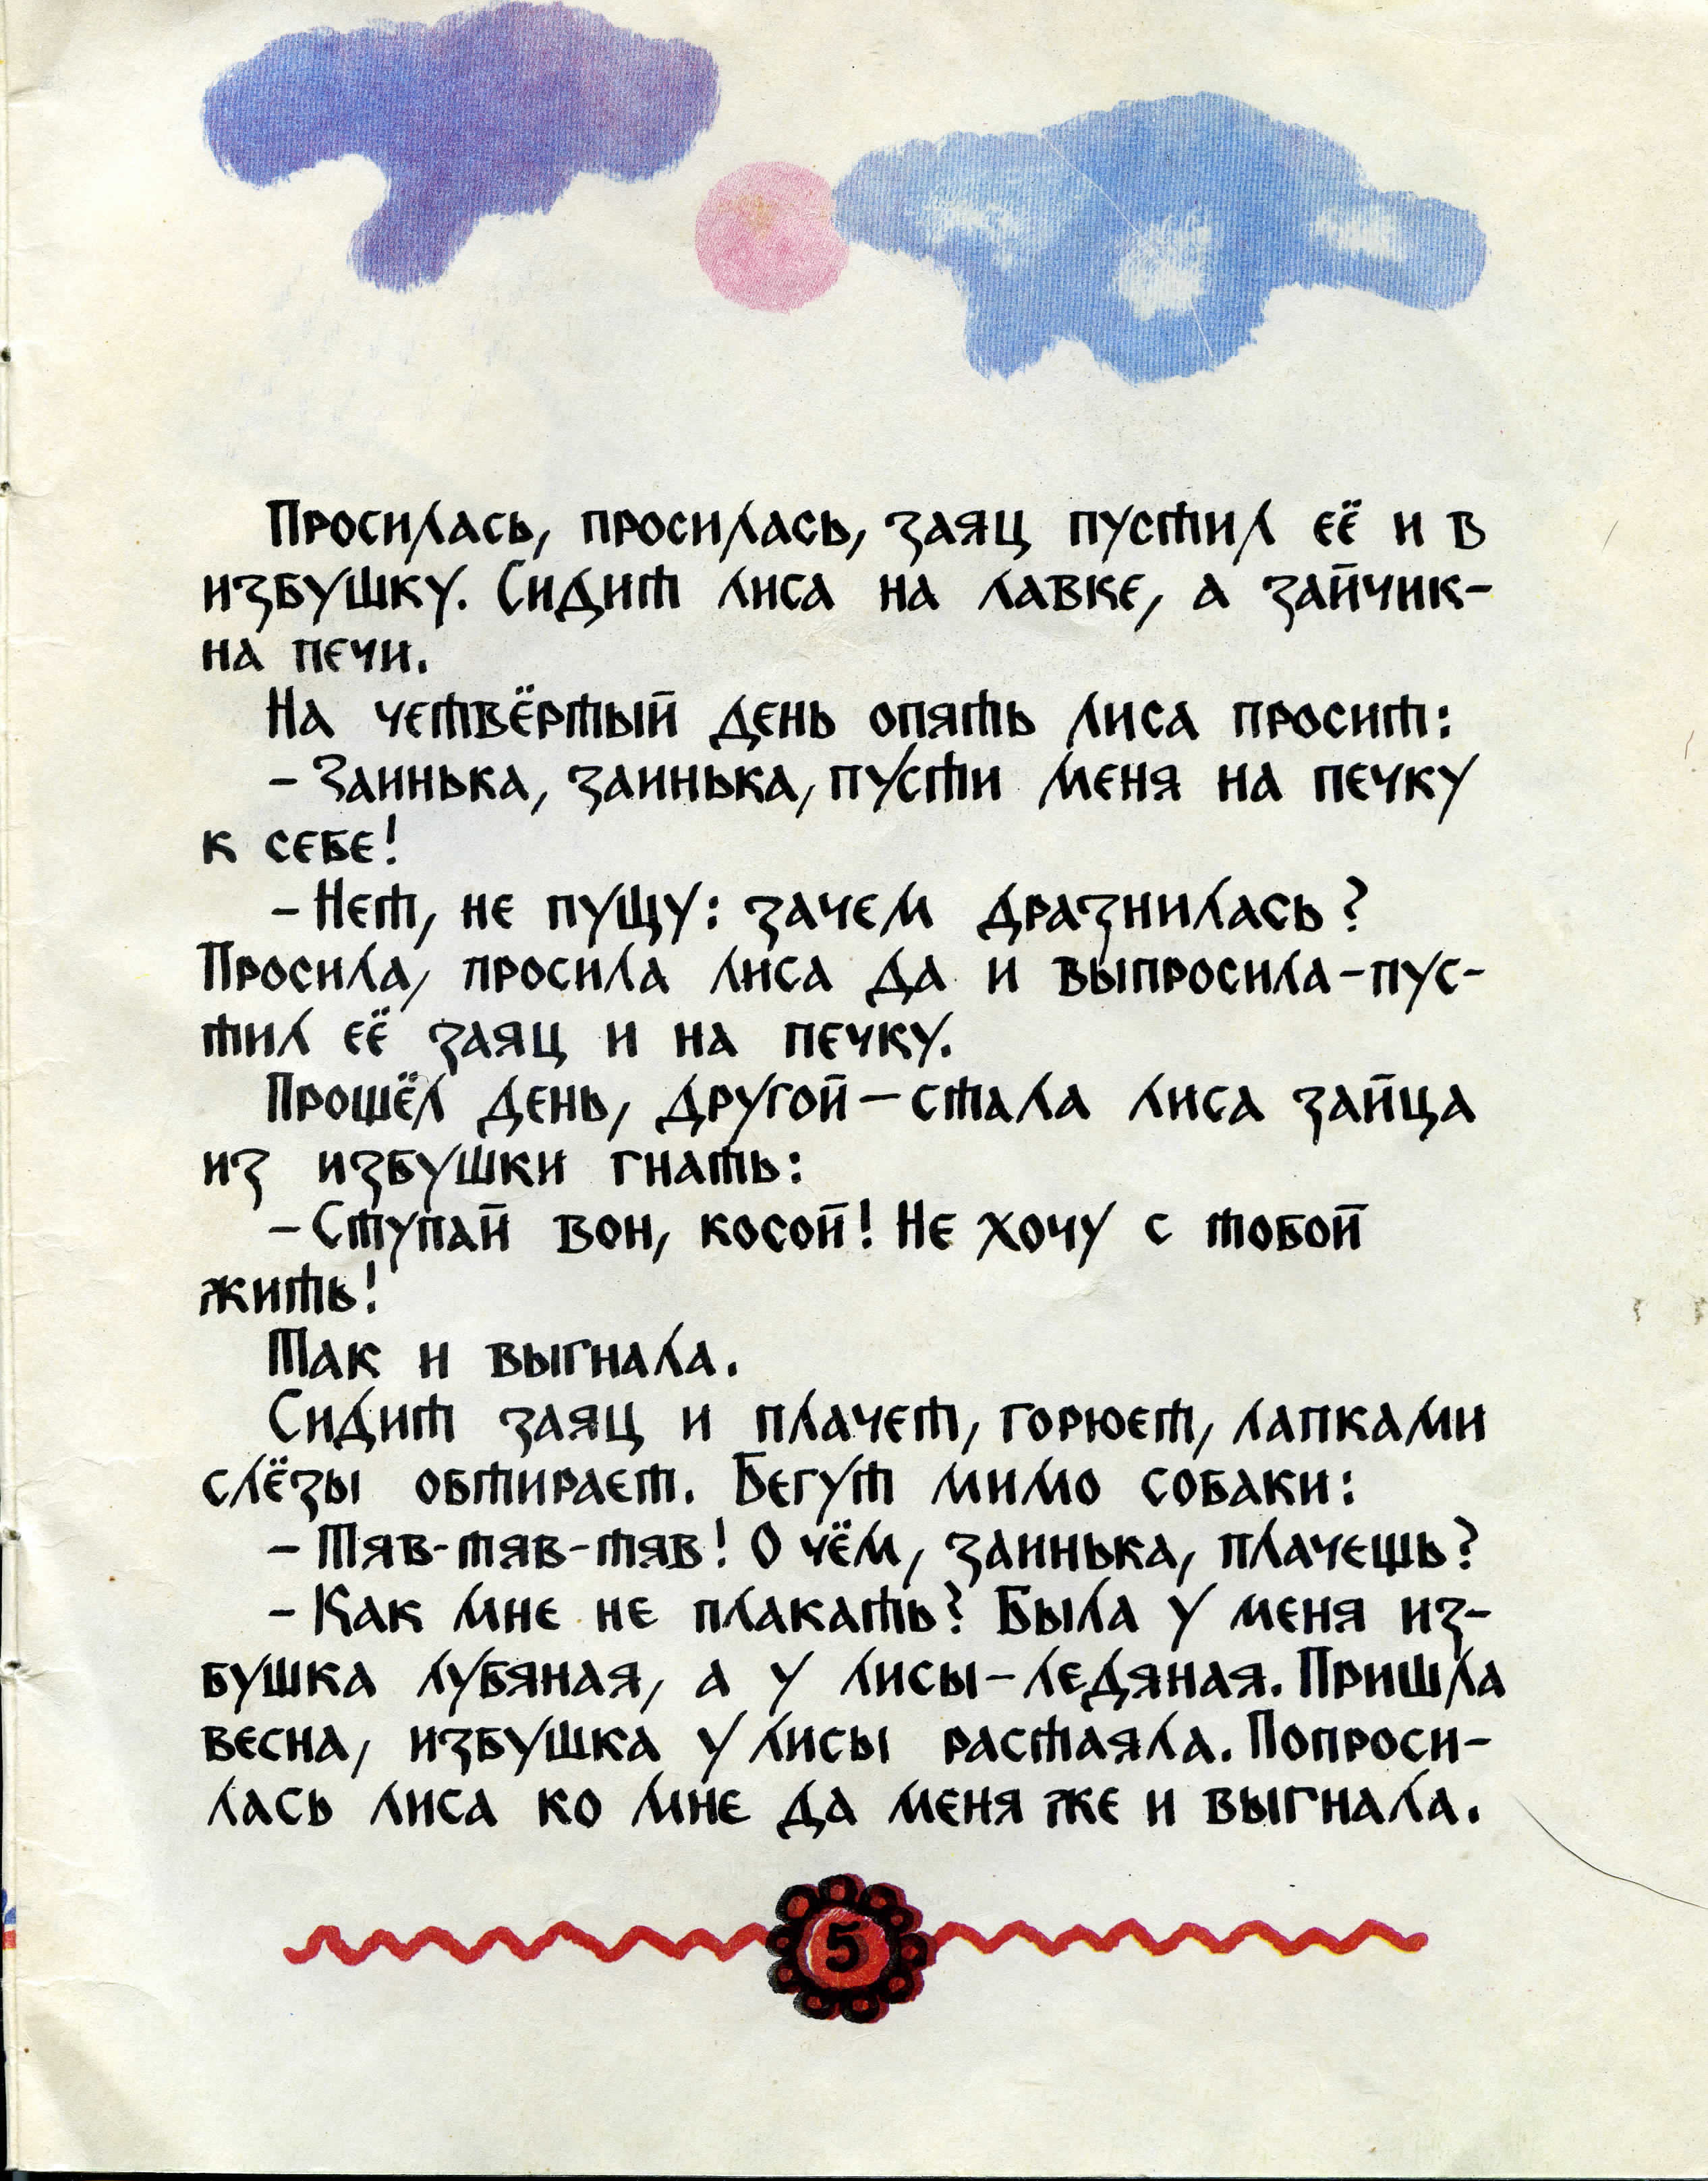 Просилась, просилась, заяц пустил её и в
избушку. Сидит лиса на лавке, а зайчик-
на печи.
На четвёртый день опять лиса просит:
– Заинька, заинька, пусти меня на печку
к себе!
– Нет, не пущу: зачем дразнилась?
Просила, просила лиса да и выпросила – пус-
тил её заяц и на печку.
Прошёл день, другой – стала лиса зайца
из избушки гнать:
– Ступай вон, косой! Не хочу с тобой
жить!
Так и выгнала.
Сидит заяц и плачет, горюет, лапками
слёзы обтирает. Бегут мимо собаки:
– Тяв-тяв-тяв! О чём, заинька, плачешь?
– Как мне не плакать? Была у меня из-
бушка лубяная, а у лисы – ледяная. Пришла
весна, избушка у лисы растаяла. Попроси-
лась лиса ко мне да меня же и выгнала.
5